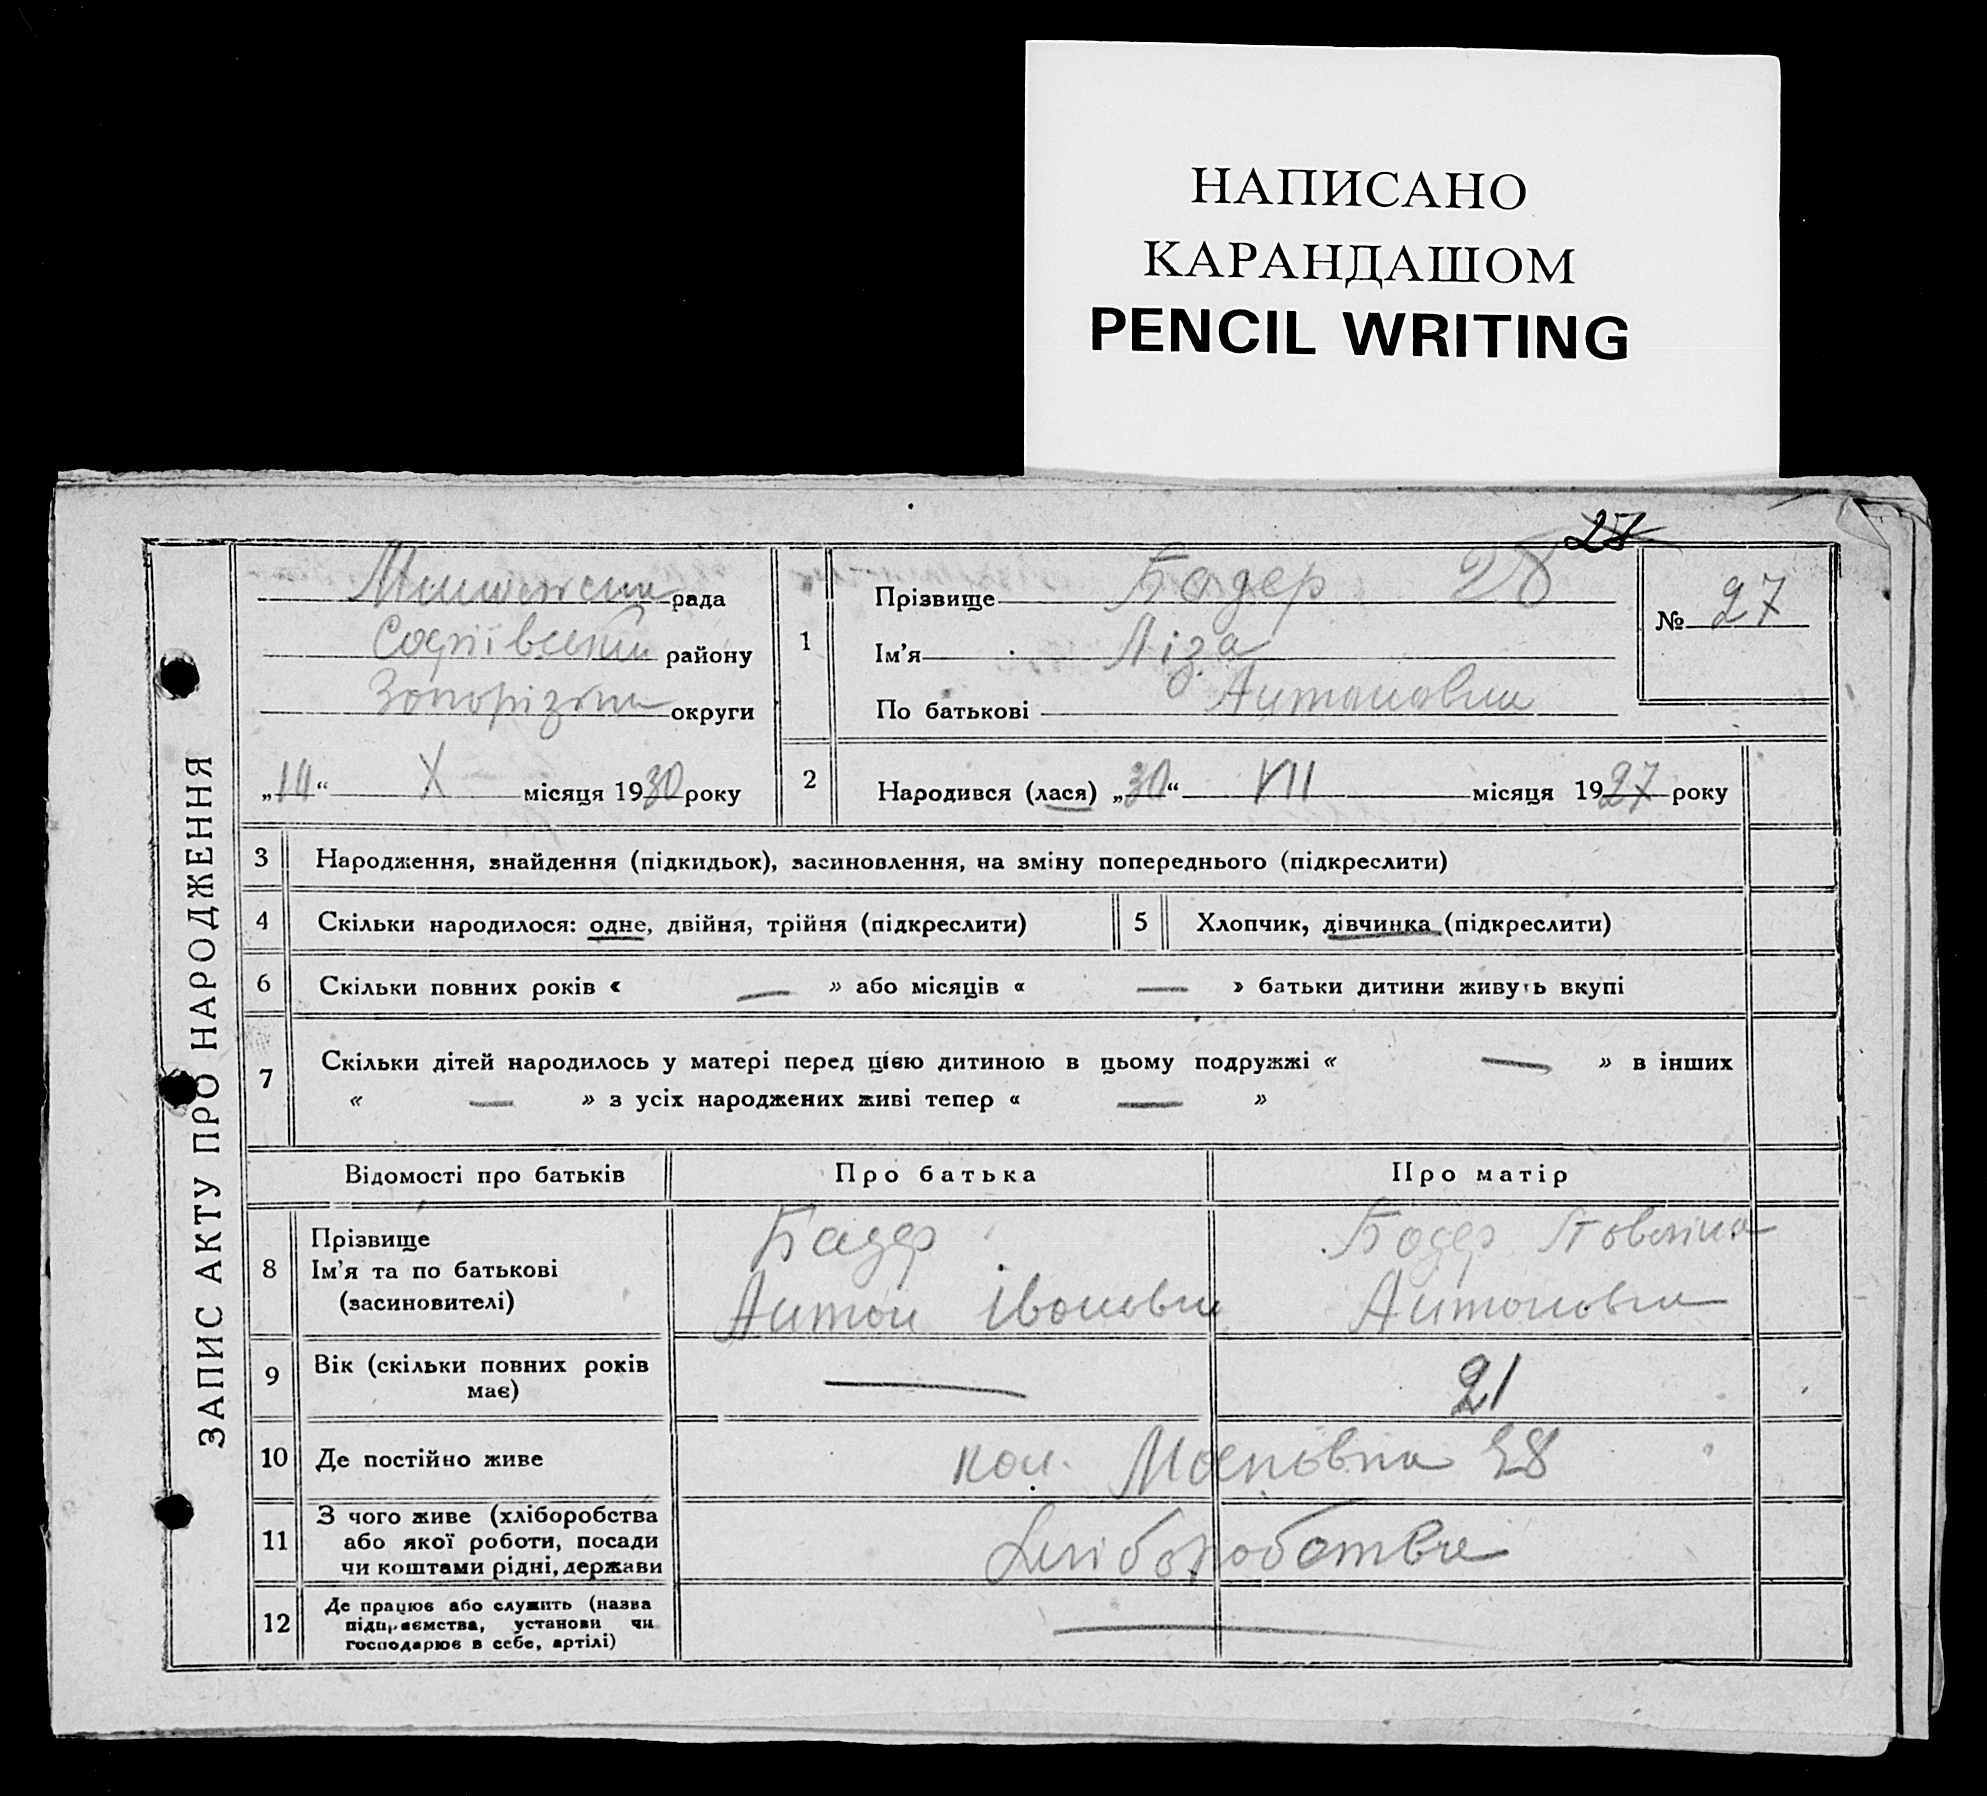 НАПИСАНО
КАРАНДАШОМ
PENCIL WRITING
27
28
ЗАПИС АКТУ ПРО НАРОДЖЕННЯ
рада
Софіївський району
Запорізька округи
„14“ X місяця 1930 року
1
Прізвище Бадер
Ім'я Ліза
По батькові Антоновна
№ 27
2 Народився (лася) „30“ VII місяця 1927 року
3 Народження, знайдення (підкидьок), засиновлення, на зміну попереднього (підкреслити)
4 Скільки народилося: одне, двійня, трійня (підкреслити)
5 Хлопчик, дівчинка (підкреслити)
6 Скільки повних років « — » або місяців « — » батьки дитини живуть вкупі
7 Скільки дітей народилось у матері перед цією дитиною в цьому подружжі « — » в інших
« — » з усіх народжених живі тепер « — »
Відомості про батьків
Про батька
Про матір
8 Прізвище
Ім'я та по батькові
(засиновителі)
Бадер
Антон Іванович
Бадер
Антоновна
9 Вік (скільки повних років
має)
—
21
10 Де постійно живе
кол. 28
11 З чого живе (хліборобства
або якої роботи, посади
чи коштами рідні, держави
Хліборобство
12 Де працює або служить (назва
підприємства, установи чи
господарює в себе, артілі)
—